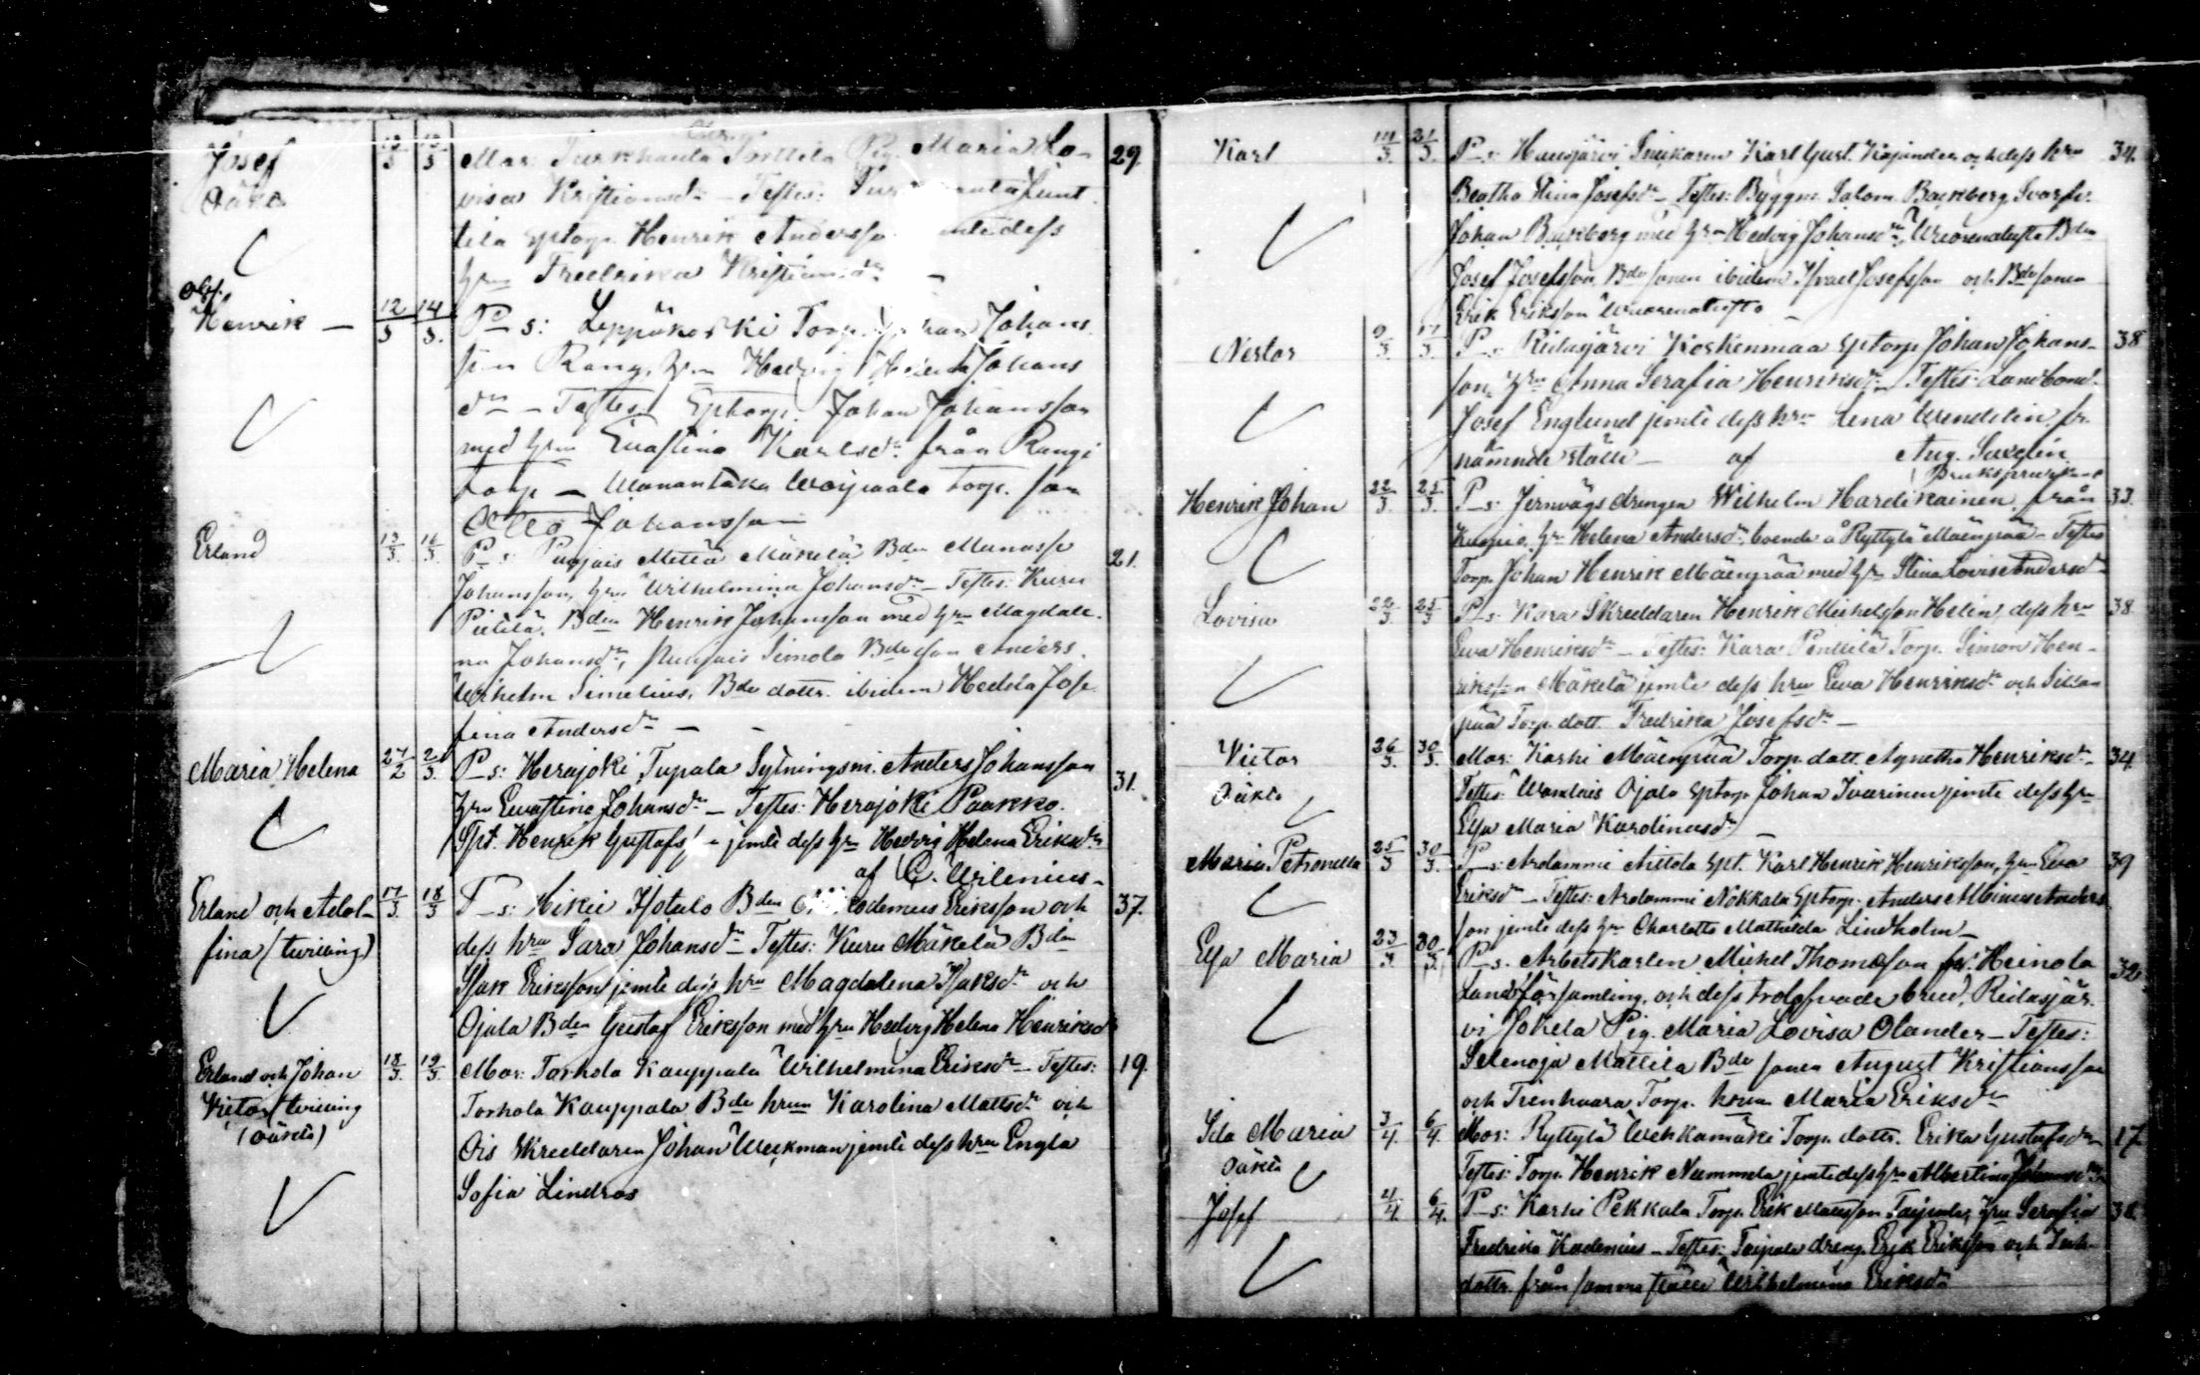 Josef
Oäkta
13/3 13/3
Mar: Turkhauta Torttila Pig. Maria Lo-
visa Kristiansdr – Testes: Tur
tila Eptorp. Henrik Andersso dess
hru Fredrika Kristiansdr –
29
Obs.
Henrik –
12/3 14/3.
P–s: Leppäkoski Torp. Johans
son Rang, hru Hedvig Helena Johans
dr – Testes: Eptorp. Johan Johansson
med hru Evastina Karlsdr från Rangi
torp – Wanantaka Woipaala Torp. son
Otto Johansson
Erland
13/3. 16/3
P–s: Puujais Mäkelä Bdn Manasse
Johansson, hru Wilhelmina Johansdr – Testes: Kuru
Pietilä, Bdn Henrik Johansson med hru Magdale-
na Johansdr, Puujais Simola Bdeson Anders
Wilhelm Simelius, Bde dottr. ibidem Hedda Jose
fina Andersdr –
21.
Maria Helena
27/2 2/3.
P–s: Herajoki Tupala Sytningsm. Anders Johansson
hru Evastina Johansdr – Testes: Herajoki Paakko.
Spt. Henrik Gustafs jemte dess hru Hedvig Helena Eriksdr
af C. Wilenius –
31.
Erland och Adol-
fina (tvilling)
17/3. 18/3
P–s: Hikiä Hotulo Bdn Eriksson och
dess hru Sara Johansdr – Testes: Kuru Mäkelä Bdn
Isak Eriksson jemte dess hru Magdalena Isaksdr och
Ojala Bdn Gustaf Eriksson med hru Hedvig Helena Henriksdr
37.
Erland och Johan
Victor (tvilling
(oäkta)
18/3. 19/3.
Mor: Torhola Kauppala Wilhelmina Eriksdr – Testes:
Torhola Kauppala Bde hrun Karolina Mattsdr och
Ois Skreddaren Johan Weckman jemte dess hru Engla
Sofia Lindros
19.
Karl
14/3. 21/3.
P–s: Hausjärvi Snickaren Karl Gust. Kajander och dess hru
Beatha Stina Josefsdr – Testes: Byggm. Salom. Backberg, Svarfv.
Johan Backberg med hru Hedvig Johansdr, Bdn
Josef Josefsson, Bde sonen ibidem Israel Josefsson och Bde sonen
Erik Eriksson
34.
Nestor
9/3. 17/3.
P–s: Ridasjärvi Koskenmaa Eptorp Johan Johans-
son, hru Anna Serafia Henriksdr – Testes: Landbond.
Josef Englund jemte dess hru Lena Wendelin fr.
nämnde ställe – af Aug. Savelin
38
Henrik Johan
22/3. 25/3.
P–s: Jernvägs drengen Wilhelm Hardikainen från
Kuopio, hru Helena Andersdr, boende å Ryttylä Mäenpää – Testes
Torp. Johan Henrik Mäenpää med hru Stina Lovisa Andersdr
33.
Lovisa
22/3 25/3
P–s: Kara Skreddaren Henrik Michelsson Helin, dess hru
Eva Henriksdr – Testes: Kara Penttilä Torp. Simon Hen-
riksson Mäkelä jemte dess hru Eva Henriksdr och Sillan
pää Torp. dott. Fredrika Josefsdr –
38.
Victor
Oäkta
26/3. 30/3.
Mor: Karhi Mäenpää Torp. dott. Agnetha Henriksdr –
Testes: Ojala Eptorp. Johan Ivarinen jemte dess hru
Eva Maria Karolinasdr –
34.
Maria Petronella
25/3 30/3.
P–s: Arolammi Aittola Spt. Karl Henrik Henriksson, hru Eva
Eriksdr – Testes: Arolammi Nokkala Eptorp. Anders Anders
son jemte dess hru Charlotta Mathilda Lindholm –
39
Eva Maria
23/3. 30/3.
P–s. Arbetskarlen Michel Thomasson fr. Heinola
Landsförsamling, och dess trolofvade brud, Ridasjär-
vi Jokela Pig. Maria Lovisa Olander – Testes:
Selenoja Mattila Bde sonen August Kristiansson
och Trenhaara Torp. hrun Maria Eriksdr
32
Ida Maria
Oäkta
3/4. 6/4.
Mor: Ryttylä Wehkamäki Torp. dottr. Erika Gustafsdr
Testes: Torp. Henrik Nummela jemte dess hru Albertina Johansdr
17.
Josef
4/4. 6/4.
P–s: Karhi Pekkala Torp. Erik Matsson Taipale, hru Serafia
Fredrika Kadenius – Testes: Taipale dreng. Erik Eriksson och Inh.
dottr. från samma ställe Wilhelmina Eriksdr
38.